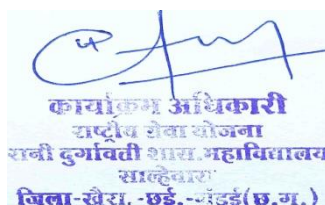 कार्यक्रम अधिकारी
राष्ट्रीय सेवा योजना
रानी दुर्गावती शास. महाविद्यालय
साल्हेवारा
जिला-खैरा.-छुई.-गंडई(छ.ग.)